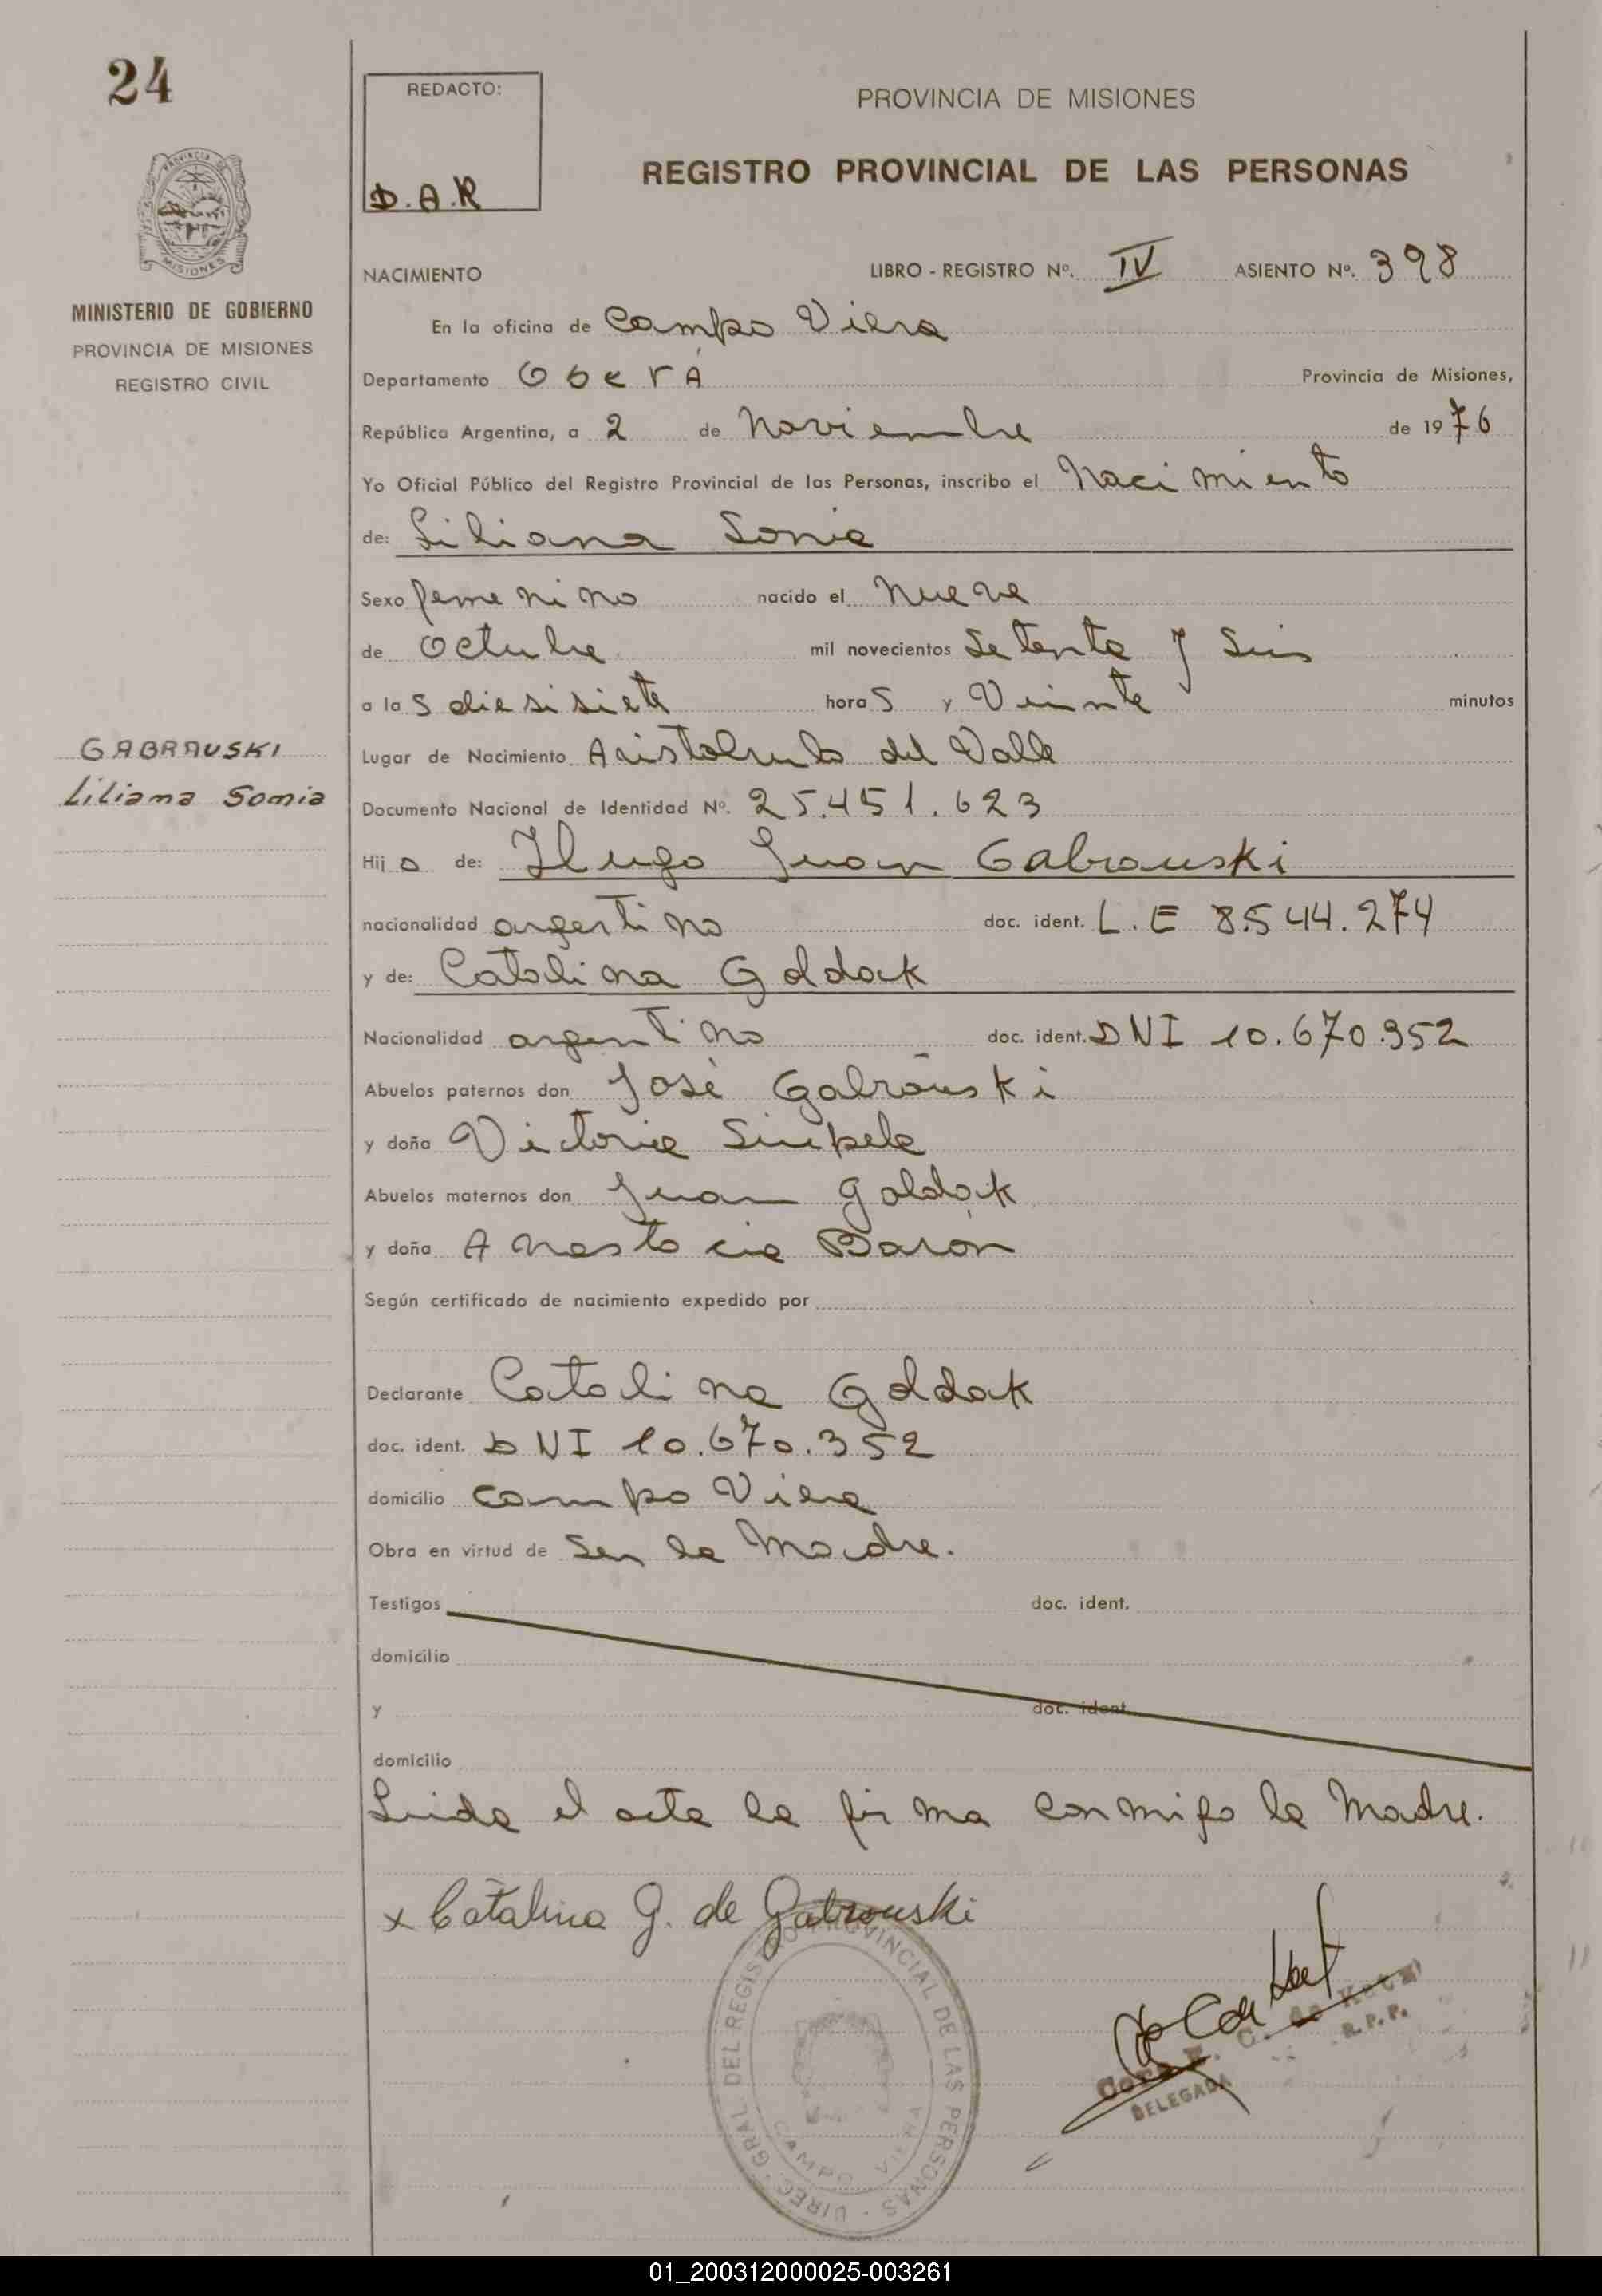 24
REDACTO:
D.A.R
PROVINCIA DE MISIONES
REGISTRO PROVINCIAL DE LAS PERSONAS
PROVINCIA DE
MISIONES
MINISTERIO DE GOBIERNO
PROVINCIA DE MISIONES
REGISTRO CIVIL
NACIMIENTO LIBRO - REGISTRO Nº. IV ASIENTO Nº. 398
En la oficina de Campo Viera
Departamento Oberá Provincia de Misiones,
República Argentina, a 2 de Noviembre de 1976
Yo Oficial Público del Registro Provincial de las Personas, inscribo el Nacimiento
de: Liliana Sonia
Sexo femenino nacido el nueve
de Octubre mil novecientos setenta y seis
a las diesisiete horas y Veinte minutos
GABRAUSKI
Liliana Sonia
Lugar de Nacimiento Aristobulo del Valle
Documento Nacional de Identidad Nº. 25.451.623
Hija de: Hugo Juan Gabrauski
nacionalidad argentino doc. ident. L.E 8.544.274
y de: Catalina Goldak
Nacionalidad argentino doc. ident. DNI 10.670.352
Abuelos paternos don José Gabrauski
y doña Victoria
Abuelos maternos don Juan Goldak
y doña Anastacia Barón
Según certificado de nacimiento expedido por
Declarante Catalina Goldak
doc. ident. DNI 10.670.352
domicilio Campo Viera
Obra en virtud de Ser la Madre.
Testigos doc. ident.
domicilio
y doc. ident.
domicilio
Leida el acta la firma conmigo la Madre.
x Catalina G. de Gabrouski
DIREC. GRAL. DEL REGISTRO PROVINCIAL DE LAS PERSONAS
CAMPO VIERA
C. de
R.P.P.
DELEGADA
01_200312000025-003261